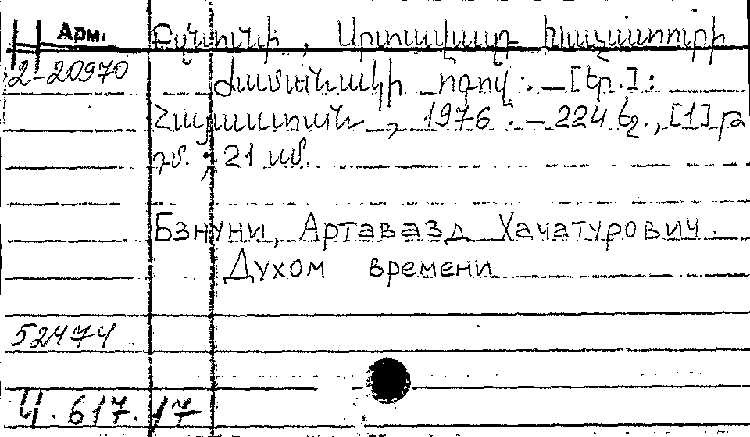 Арм.
Բզնունի, Արտավազդ Խաչատուրի
2-20970
Ժամանակի ոգով. — [Եր.]:
Հայաստան, 1976. — 224 էջ., [1] թ
դմ.; 21 սմ.
Бзнуни, Артавазд Хачатурович.
Духом времени
52474
Ч. 617. 17